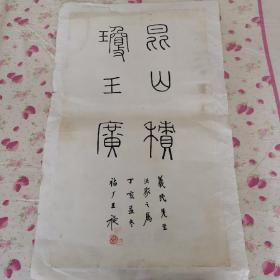 昆山積
瓊玉廣
先生
法家之屬
丁亥孟冬
福厂王禔